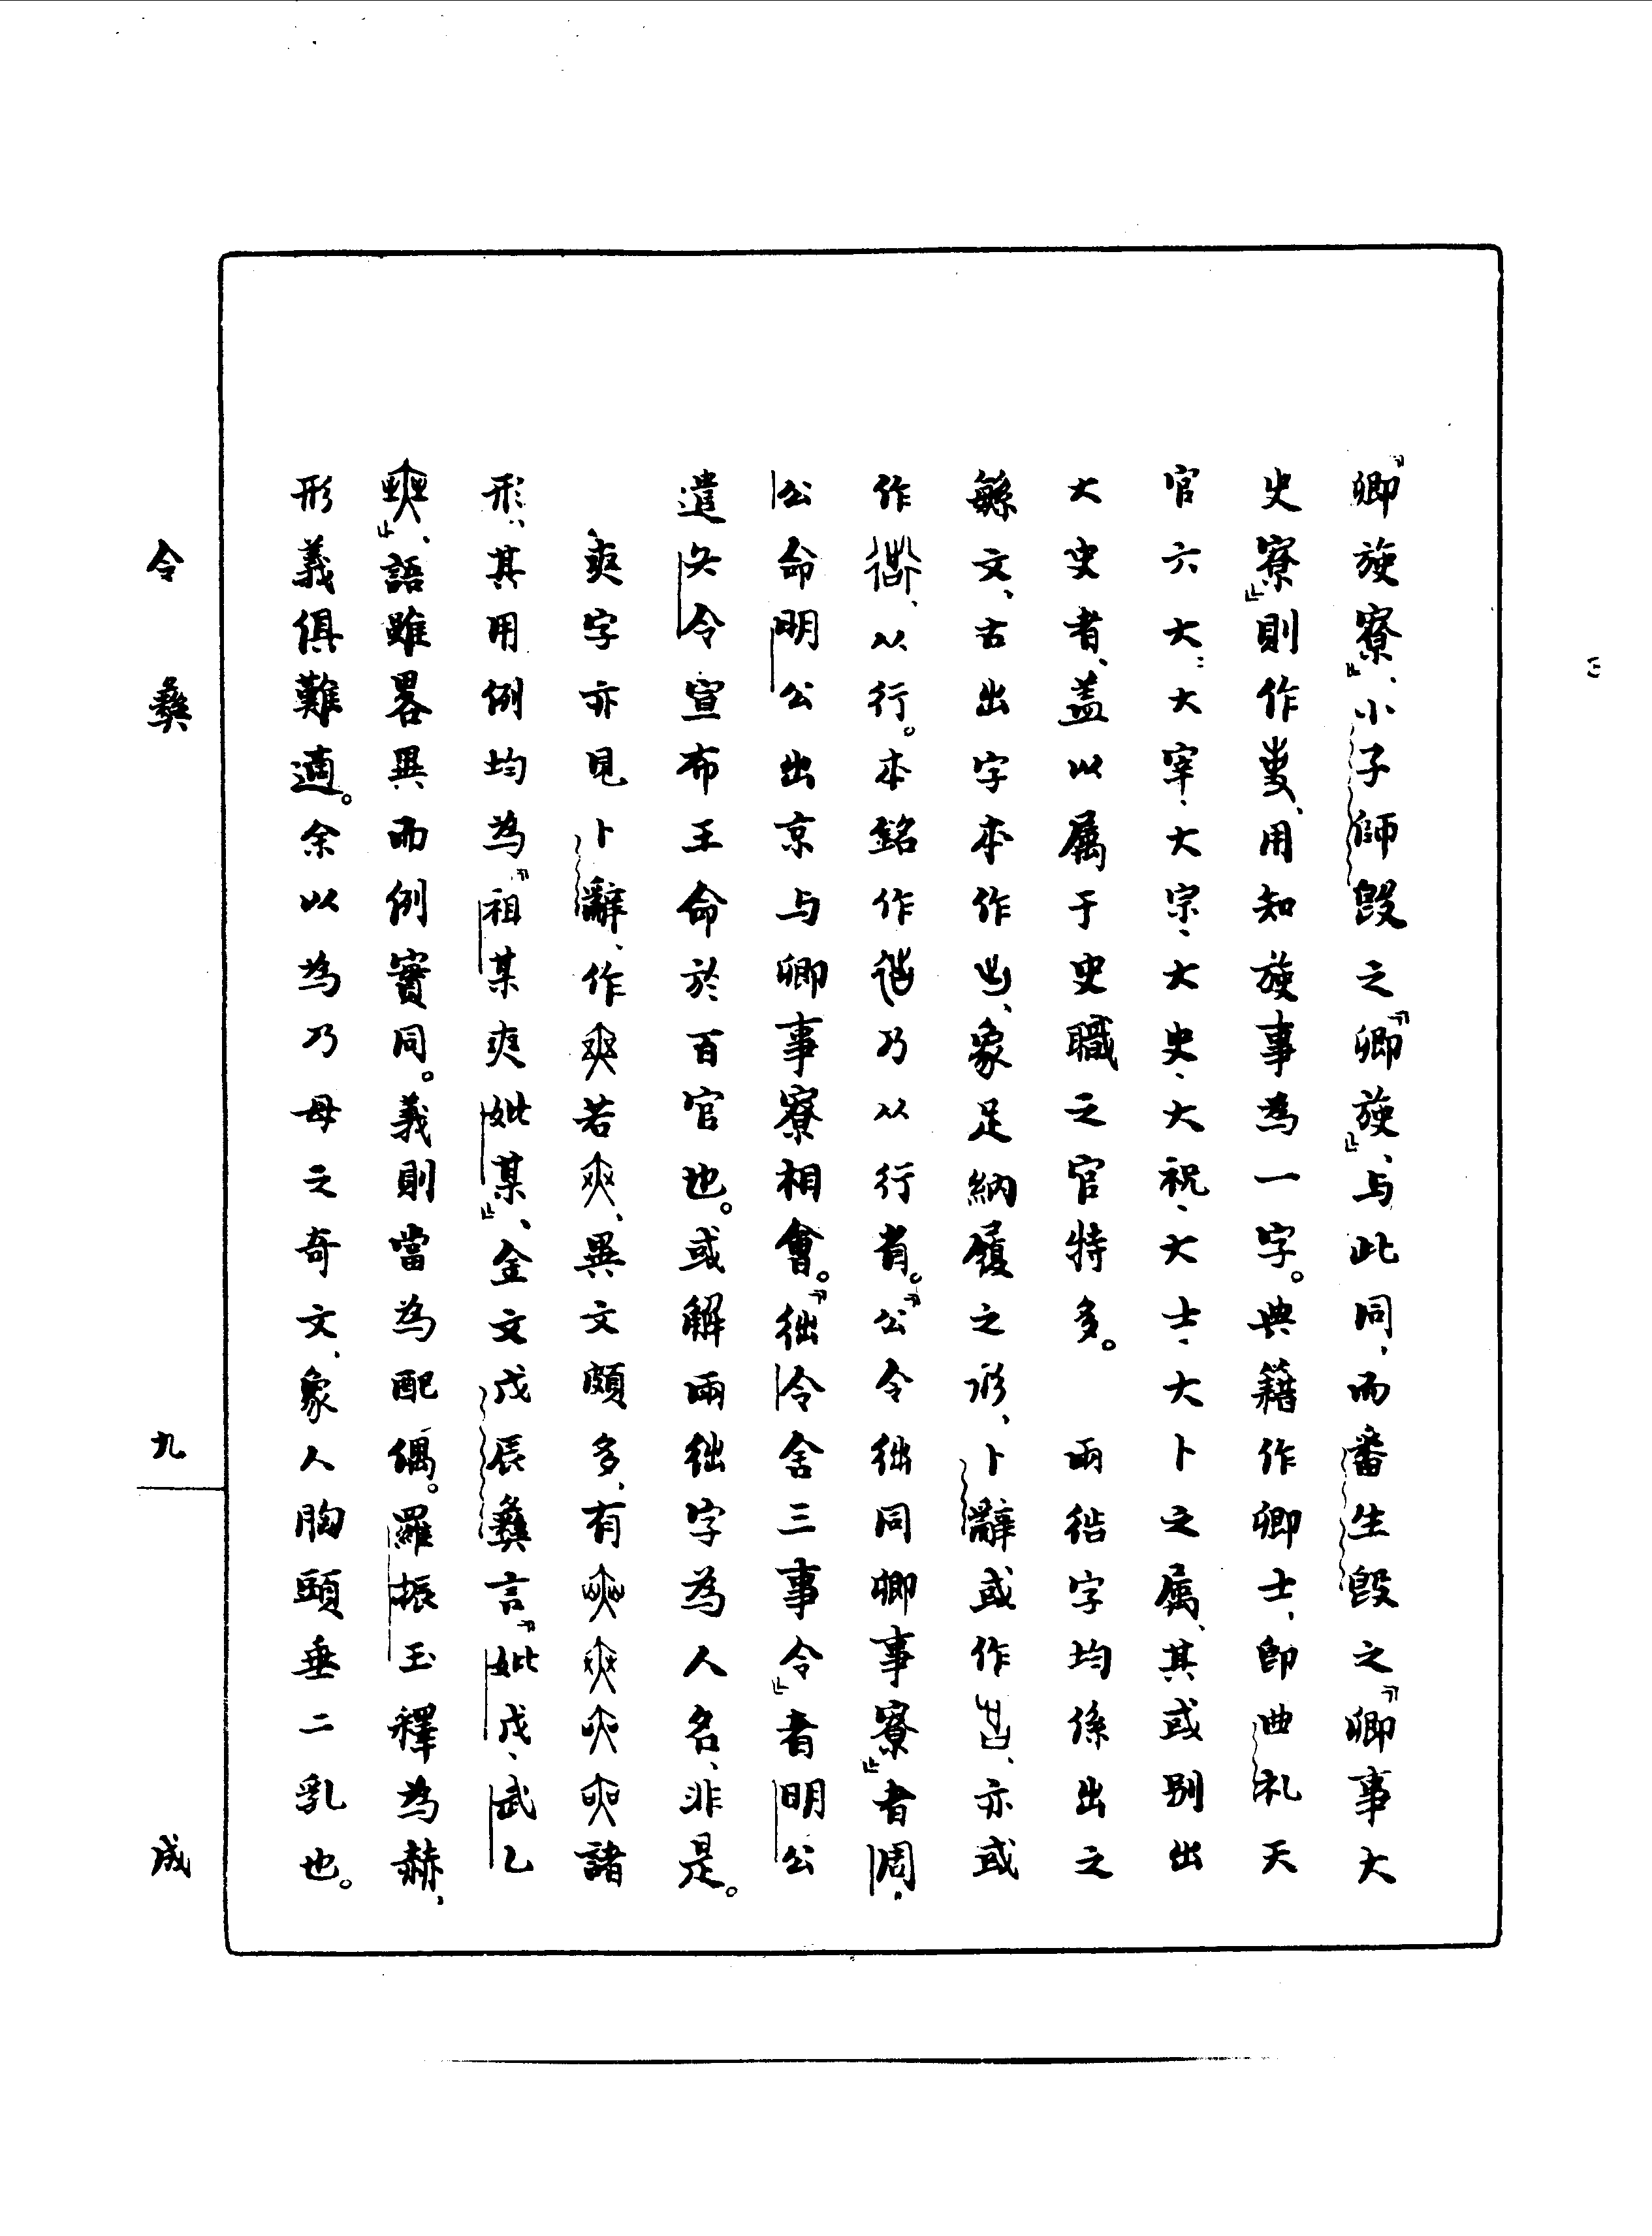 『卿旋寮』、小子𠂤殷之『卿旋』、与此同，而番生殷之『卿事大
史寮』則作叓，用知旋事為一字。典籍作卿士，即曲礼天
官六大：大宰、大宗、大史、大祝、大士、大卜之属，其或别出
大史者，盖以属于史職之官特多。 兩𢓊字均係出之
緐文，古出字本作，象足納履之形，卜辭或作，亦或
作，从行。本銘作乃从行省。『公令𢓊同卿事寮』者周
公命明公出京与卿事寮相會。『𢓊令舍三事令』者明公
遣夨令宣布王命於百官也。或解兩𢓊字為人名，非是。
爽字亦見卜辭，作若，異文頗多，有諸
形，其用例均為『祖某爽妣某』，金文戊辰彝言『妣戊、武乙
』，語雖畧異而例實同。義則當為配偶。羅振玉釋為赫，
形義俱難適。余以為乃母之奇文，象人胸頭垂二乳也。
令彝 九 成